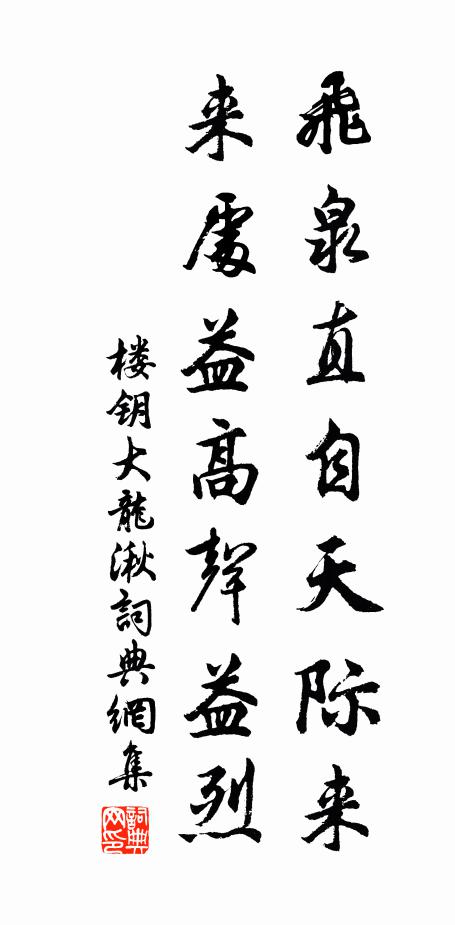 飛泉直自天际来
来處益高聲益烈
楼钥大龍湫詞典網集
詞典网印